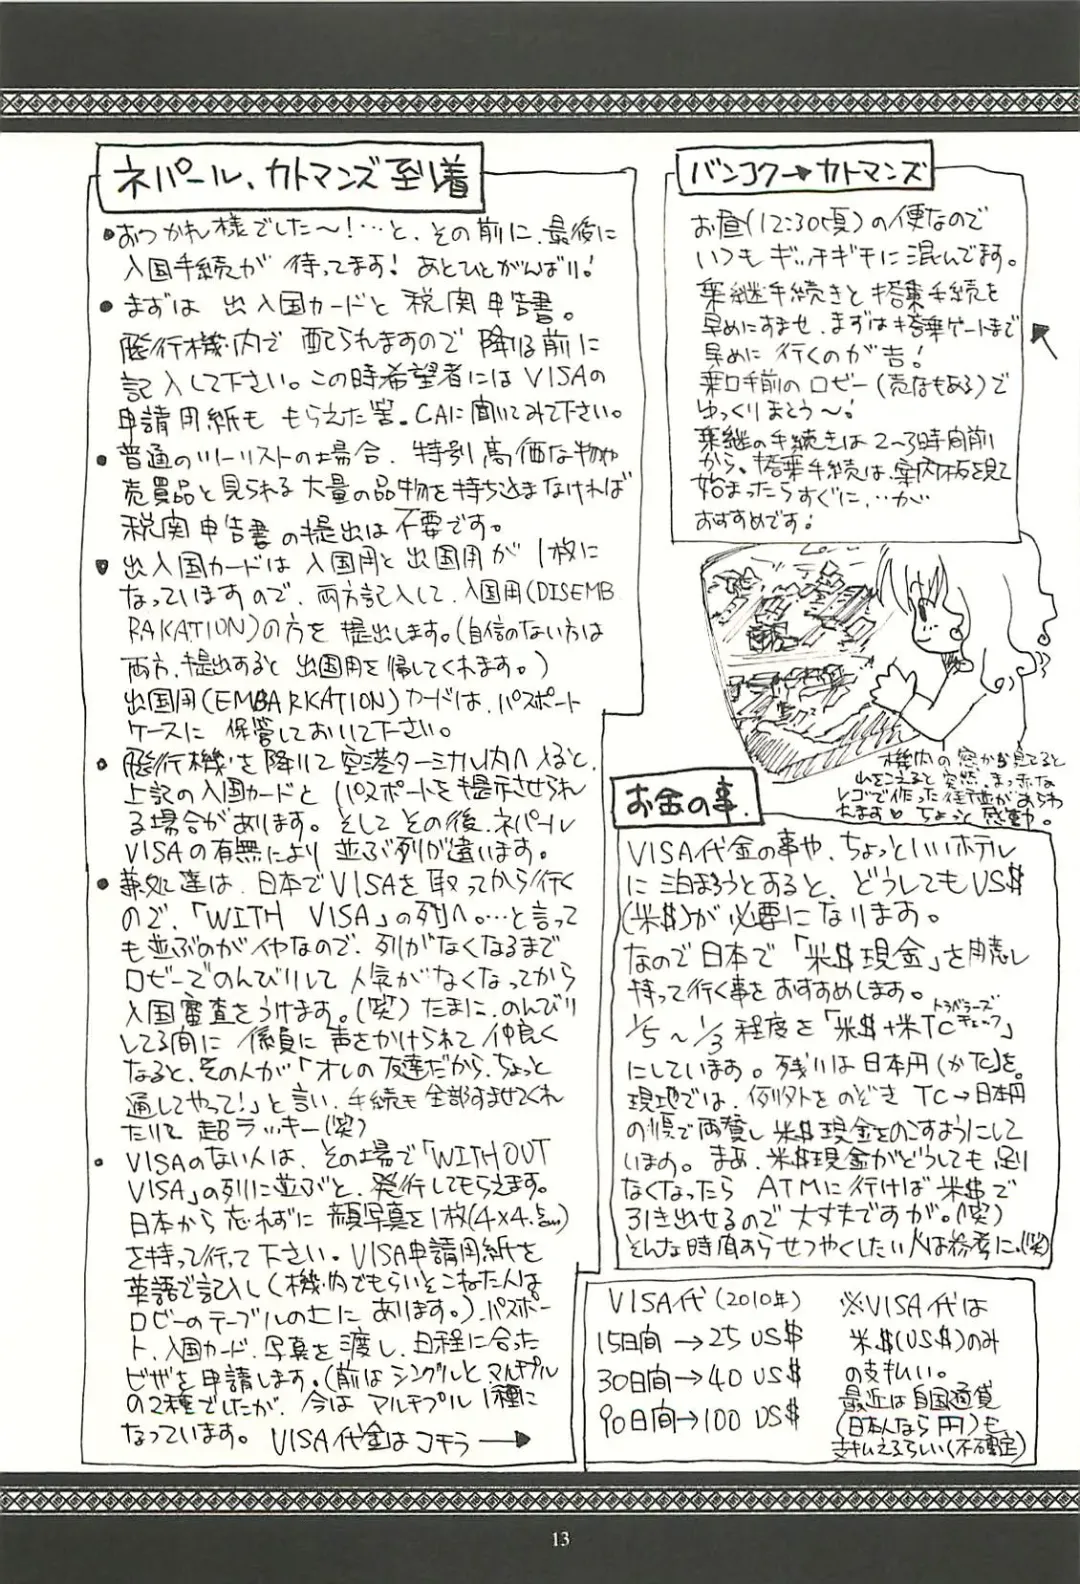 バンコク→カトマンズ
お昼(12:30頃)の便なので
いつもギッチギチに混んでます。
乗継手続きと搭乗手続を
早めにすませ、まずは搭乗ゲートまで
早めに行くのが吉!
乗口手前のロビー(売店もある)で
ゆっくりまとう〜!
乗継の手続きは2〜3時間前
から。搭乗手続は、案内板を見て
始まったらすぐに、…が
おすすめです!
機内の窓から見てると
山をこえると突然、まっ赤な
レゴで作った街並があらわ
れます♥ ちょっと感動。
ネパール、カトマンズ到着
●おつかれ様でした〜!…と、その前に、最後に
入国手続が待ってます!あとひとがんばり!
●まずは 出入国カードと 税関申告書。
飛行機内で 配られますので 降りる前に
記入して下さい。この時希望者には VISAの
申請用紙も もらえた筈。CAに聞いてみて下さい。
●普通のツーリストの場合、特別高価な物や
売買品と見られる大量の品物を持ち込まなければ
税関申告書の提出は不要です。
●出入国カードは 入国用と 出国用が 1枚に
なっていますので、両方記入して、入国用(DISEMB
RAKATION)の方を 提出します。(自信のない方は
両方、提出すると 出国用を帰してくれます。)
出国用(EMBARKATION)カードは、パスポート
ケースに 保管しておいて下さい。
●飛行機を降りて空港ターミナル内へ入ると、
上記の入国カードと パスポートを提示させられ
る場合があります。そして その後、ネパール
VISAの有無により 並ぶ列が違います。
●兼処達は、日本でVISAを取ってから行く
ので、「WITH VISA」の列へ。…と言って
も並ぶのがイヤなので、列がなくなるまで
ロビーでのんびりして 人気がなくなってから
入国審査をうけます。(笑)たまに、のんびり
してる間に 係員に 声をかけられて 仲良く
なると、その人が「オレの友達だから、ちょっと
通してやって!」と言い、手続も全部すませてくれ
たりて 超ラッキー(笑)
●VISAのない人は、その場で「WITHOUT
VISA」の列に並ぶと、発行してもらえます。
日本から忘れずに 顔写真を1枚(4×4.5cm)
を持って行って下さい。VISA申請用紙を
英語で記入し(機内でもらいそこねた人は
ロビーのテーブルの上にあります。)、パスポー
ト、入国カード、写真を渡し、日程に合った
ビザを申請します。(前はシングルとマルチプル
の2種でしたが、今はマルチプル1種に
なっています。 VISA代金はコチラ→
お金の事。
VISA代金の事や、ちょっといいホテル
に泊まろうとすると、どうしてもUS$
(米$)が必要になります。
なので日本で「米$現金」を用意し
持って行く事をおすすめします。
1/5〜1/3程度を「米$+米TCトラベラーズチェック」
にしています。残りは日本円(かたむを。
現地では、例外をのぞき TC→日本円
の順で両替し 米$現金をのこすようにして
います。まあ、米$現金がどうしても足り
なくなったら ATMに行けば米$で
引き出せるので大丈夫ですが。(笑)
そんな時間あらせつやくしたい人は参考に。(笑)
VISA代(2010年)
15日間→25 US$
30日間→40 US$
90日間→100 US$
※VISA代は
米$(US$)のみ
の支払い。
最近は自国通貨
(日本人なら円)も
支払えるらしい(不確定)
13